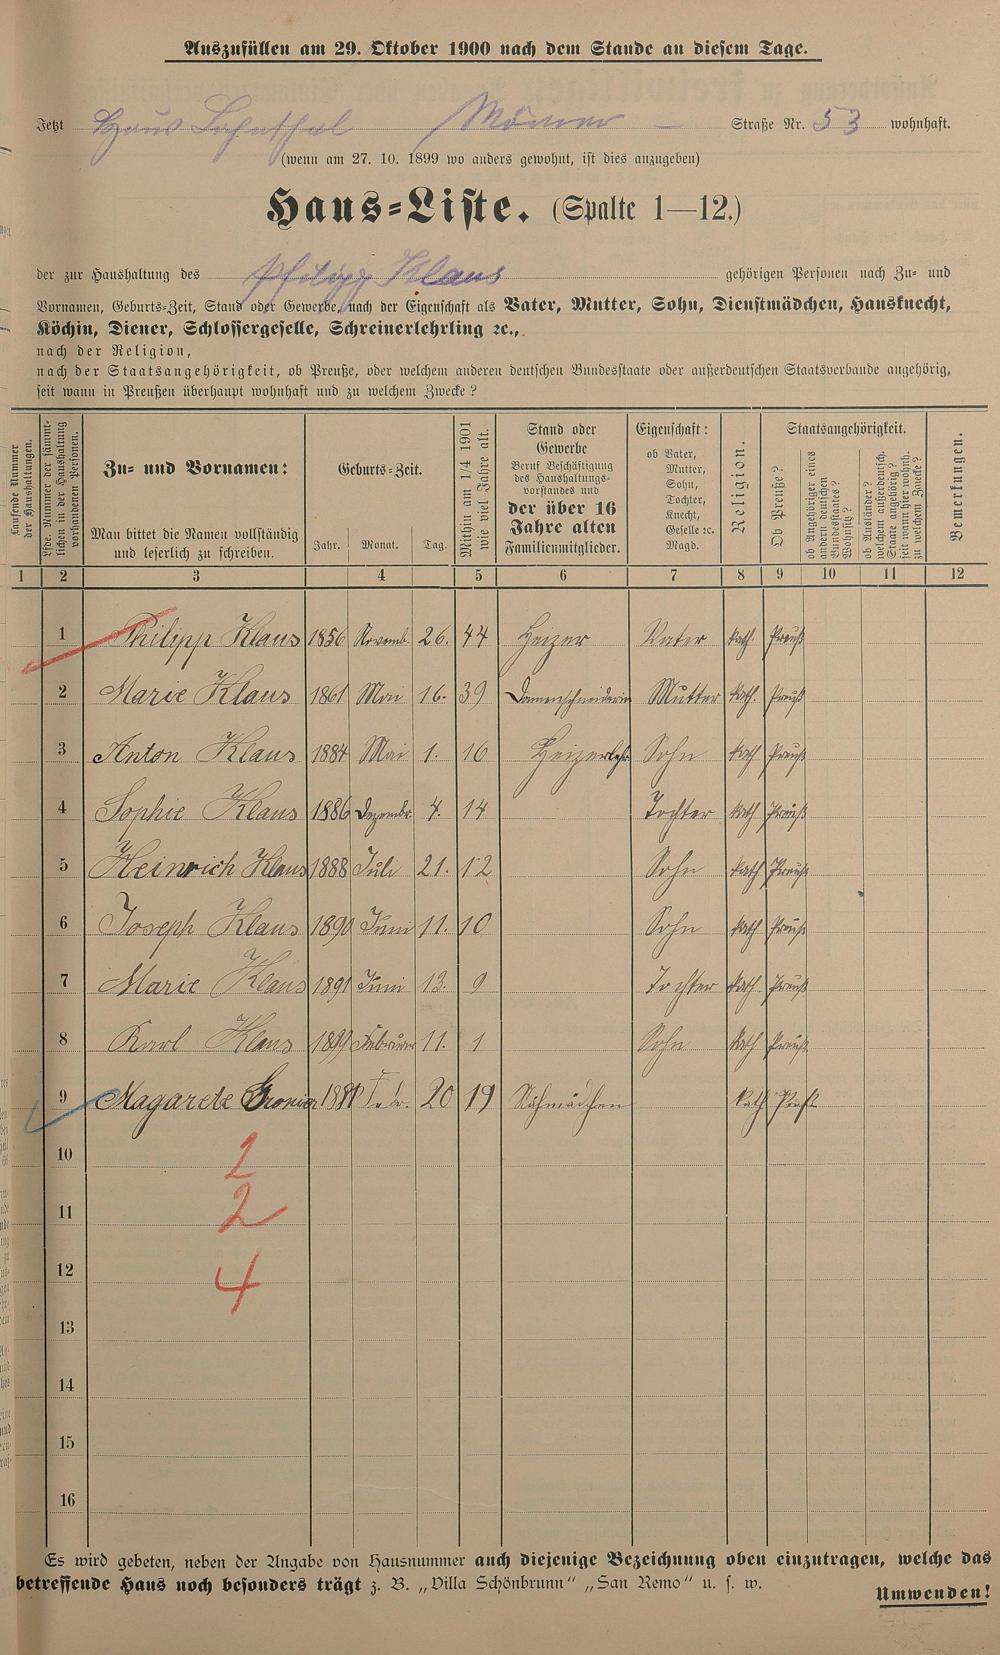 Auszufüllen am 29. Oktober 1900 nach dem Stande an diesem Tage.
Jetzt Haus Lahnthal Straße Nr. 53 wohnhaft.
(wenn am 27. 10. 1899 wo anders gewohnt, ist dies anzugeben)
Haus-Liste. (Spalte 1—12.)
der zur Haushaltung des Philipp Klaus gehörigen Personen nach Zu- und
Vornamen, Geburts-Zeit, Stand oder Gewerbe, nach der Eigenschaft als Vater, Mutter, Sohn, Dienstmädchen, Hausknecht,
Köchin, Diener, Schlossergeselle, Schreinerlehrling ꝛc.,
nach der Religion,
nach der Staatsangehörigkeit, ob Preuße, oder welchem anderen deutschen Bundesstaate oder außerdeutschen Staatsverbande angehörig,
seit wann in Preußen überhaupt wohnhaft und zu welchem Zwecke?
Laufende Nummer der Haushaltungen.
Lfde. Nummer der sämmtlichen in der Haushaltung vorhandenen Personen.
Zu- und Vornamen:
Man bittet die Namen vollständig
und leserlich zu schreiben.
Geburts-Zeit.
Jahr. Monat. Tag.
Mithin am 1/4 1901 wie viel Jahre alt.
Stand oder
Gewerbe
Beruf Beschäftigung
des Haushaltungs-
vorstandes und
der über 16
Jahre alten
Familienmitglieder.
Eigenschaft:
ob Vater,
Mutter,
Sohn,
Tochter,
Knecht,
Geselle ꝛc.
Magd.
Religion.
Staatsangehörigkeit.
Ob Preuße?
ob Angehöriger eines andern deutschen Bundesstaates? Wohnsitz?
ob Ausländer? welchem außerdeutsch. Staate angehörig? seit wann hier wohnh. zu welchem Zwecke?
Bemerkungen.
1 2 3 4 5 6 7 8 9 10 11 12
1 Philipp Klaus 1856 Novemb. 26. 44 Heizer Vater kath. Preuß
2 Marie Klaus 1861 Mai 16. 39 Damenschneiderin Mutter kath. Preuß
3 Anton Klaus 1884 Mai 1. 16 Heizerlehr Sohn kath Preuß
4 Sophie Klaus 1886 Dezembr. 4. 14 Tochter kath Preuß
5 Heinrich Klaus 1888 Juli 21. 12 Sohn kath Preuß
6 Joseph Klaus 1890 Juni 11. 10 Sohn kath Preuß
7 Marie Klaus 1891 Juni 13. 9 Tochter kath Preuß
8 Karl Klaus 1899 Februar 11. 1 Sohn kath Preuß
9 Magarete 1881 Febr. 20 19 Nähmädchen kath
10 2
11 2
12 4
13
14
15
16
Es wird gebeten, neben der Angabe von Hausnummer auch diejenige Bezeichnung oben einzutragen, welche das
betreffende Haus noch besonders trägt z. B. „Villa Schönbrunn“ „San Remo“ u. s. w.
Umwenden!